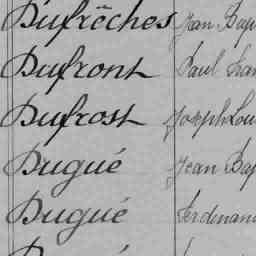 Dufrêches Jean Bap
Dufront Paul Fran
Dufrost Joseph Lou
Dugué Jean Bap
Dugué Ferdinan